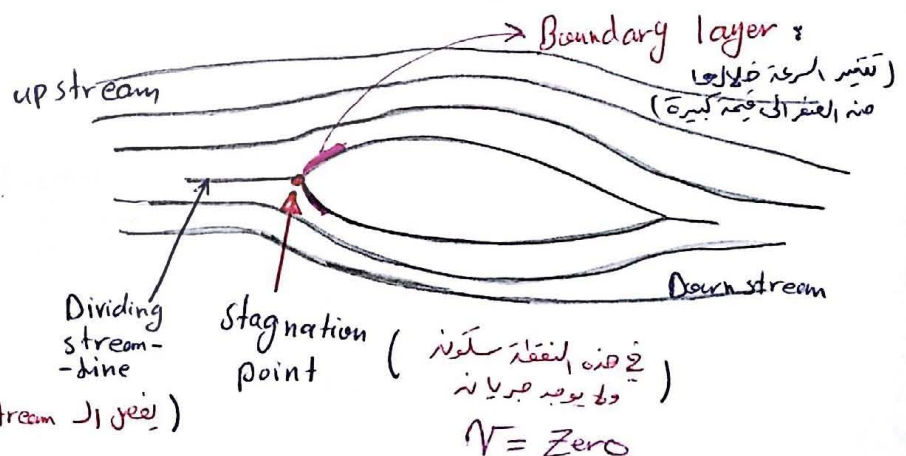 Boundary layer :
(تتغير السرعة خلالها
من الصفر الى قيمة كبيرة)
upstream
Downstream
Dividing
stream-
-line
(يفصل ال stream
stagnation
point
(في هذه النقطة سكون
ولا يوجد جريان)
V = Zero